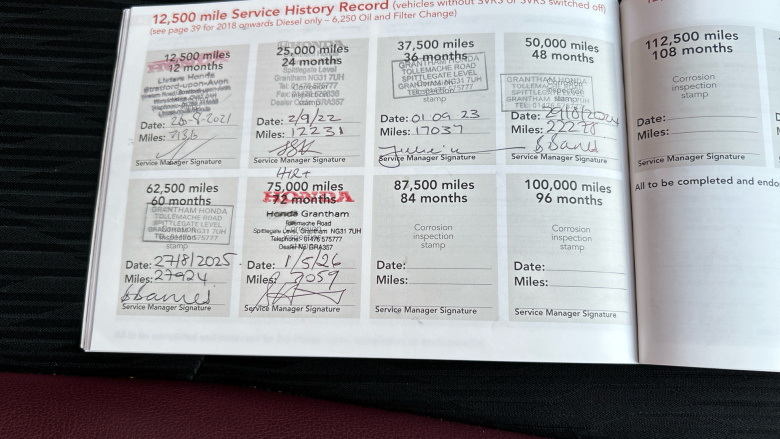 12,500 mile Service History Record (vehicles without SVRS or SVRS switched off)
(see page 39 for 2018 onwards Diesel only – 6,250 Oil and Filter Change)
12,500 miles
12 months
Listers Honda
Stratford-upon-Avon
Date: 20-8-2021
Miles:
Service Manager Signature
25,000 miles
24 months
Spittlegate Level
Grantham NG31 7UH
Tel: 01476 575777
Dealer Code GRA357
Date: 2/9/22
Miles: 12231
Service Manager Signature
37,500 miles
36 months
GRANTHAM HONDA
TOLLEMACHE ROAD
SPITTLEGATE LEVEL
GRANTHAM NG31 7UH
TEL: 01476 575777
stamp
Date: 01 09 23
Miles: 17037
Service Manager Signature
50,000 miles
48 months
GRANTHAM HONDA
Corrosion
inspection
stamp
Date: 29/8/2024
Miles: 22278
Service Manager Signature
62,500 miles
60 months
GRANTHAM HONDA
TOLLEMACHE ROAD
SPITTLEGATE LEVEL
Date: 27/8/2025
Miles: 27924
Service Manager Signature
HR+
75,000 miles
HONDA
72 months
Honda Grantham
Tollemache Road
Spittlegate Level, Grantham NG31 7UH
Telephone: 01476 575777
Dealer No: GRA357
Date: 1/5/26
Miles:
Service Manager Signature
87,500 miles
84 months
Corrosion
inspection
stamp
Date:
Miles:
Service Manager Signature
100,000 miles
96 months
Corrosion
inspection
stamp
Date:
Miles:
Service Manager Signature
112,500 miles
108 months
Corrosion
inspection
stamp
Date:
Miles:
Service Manager Signature
All to be completed and endo